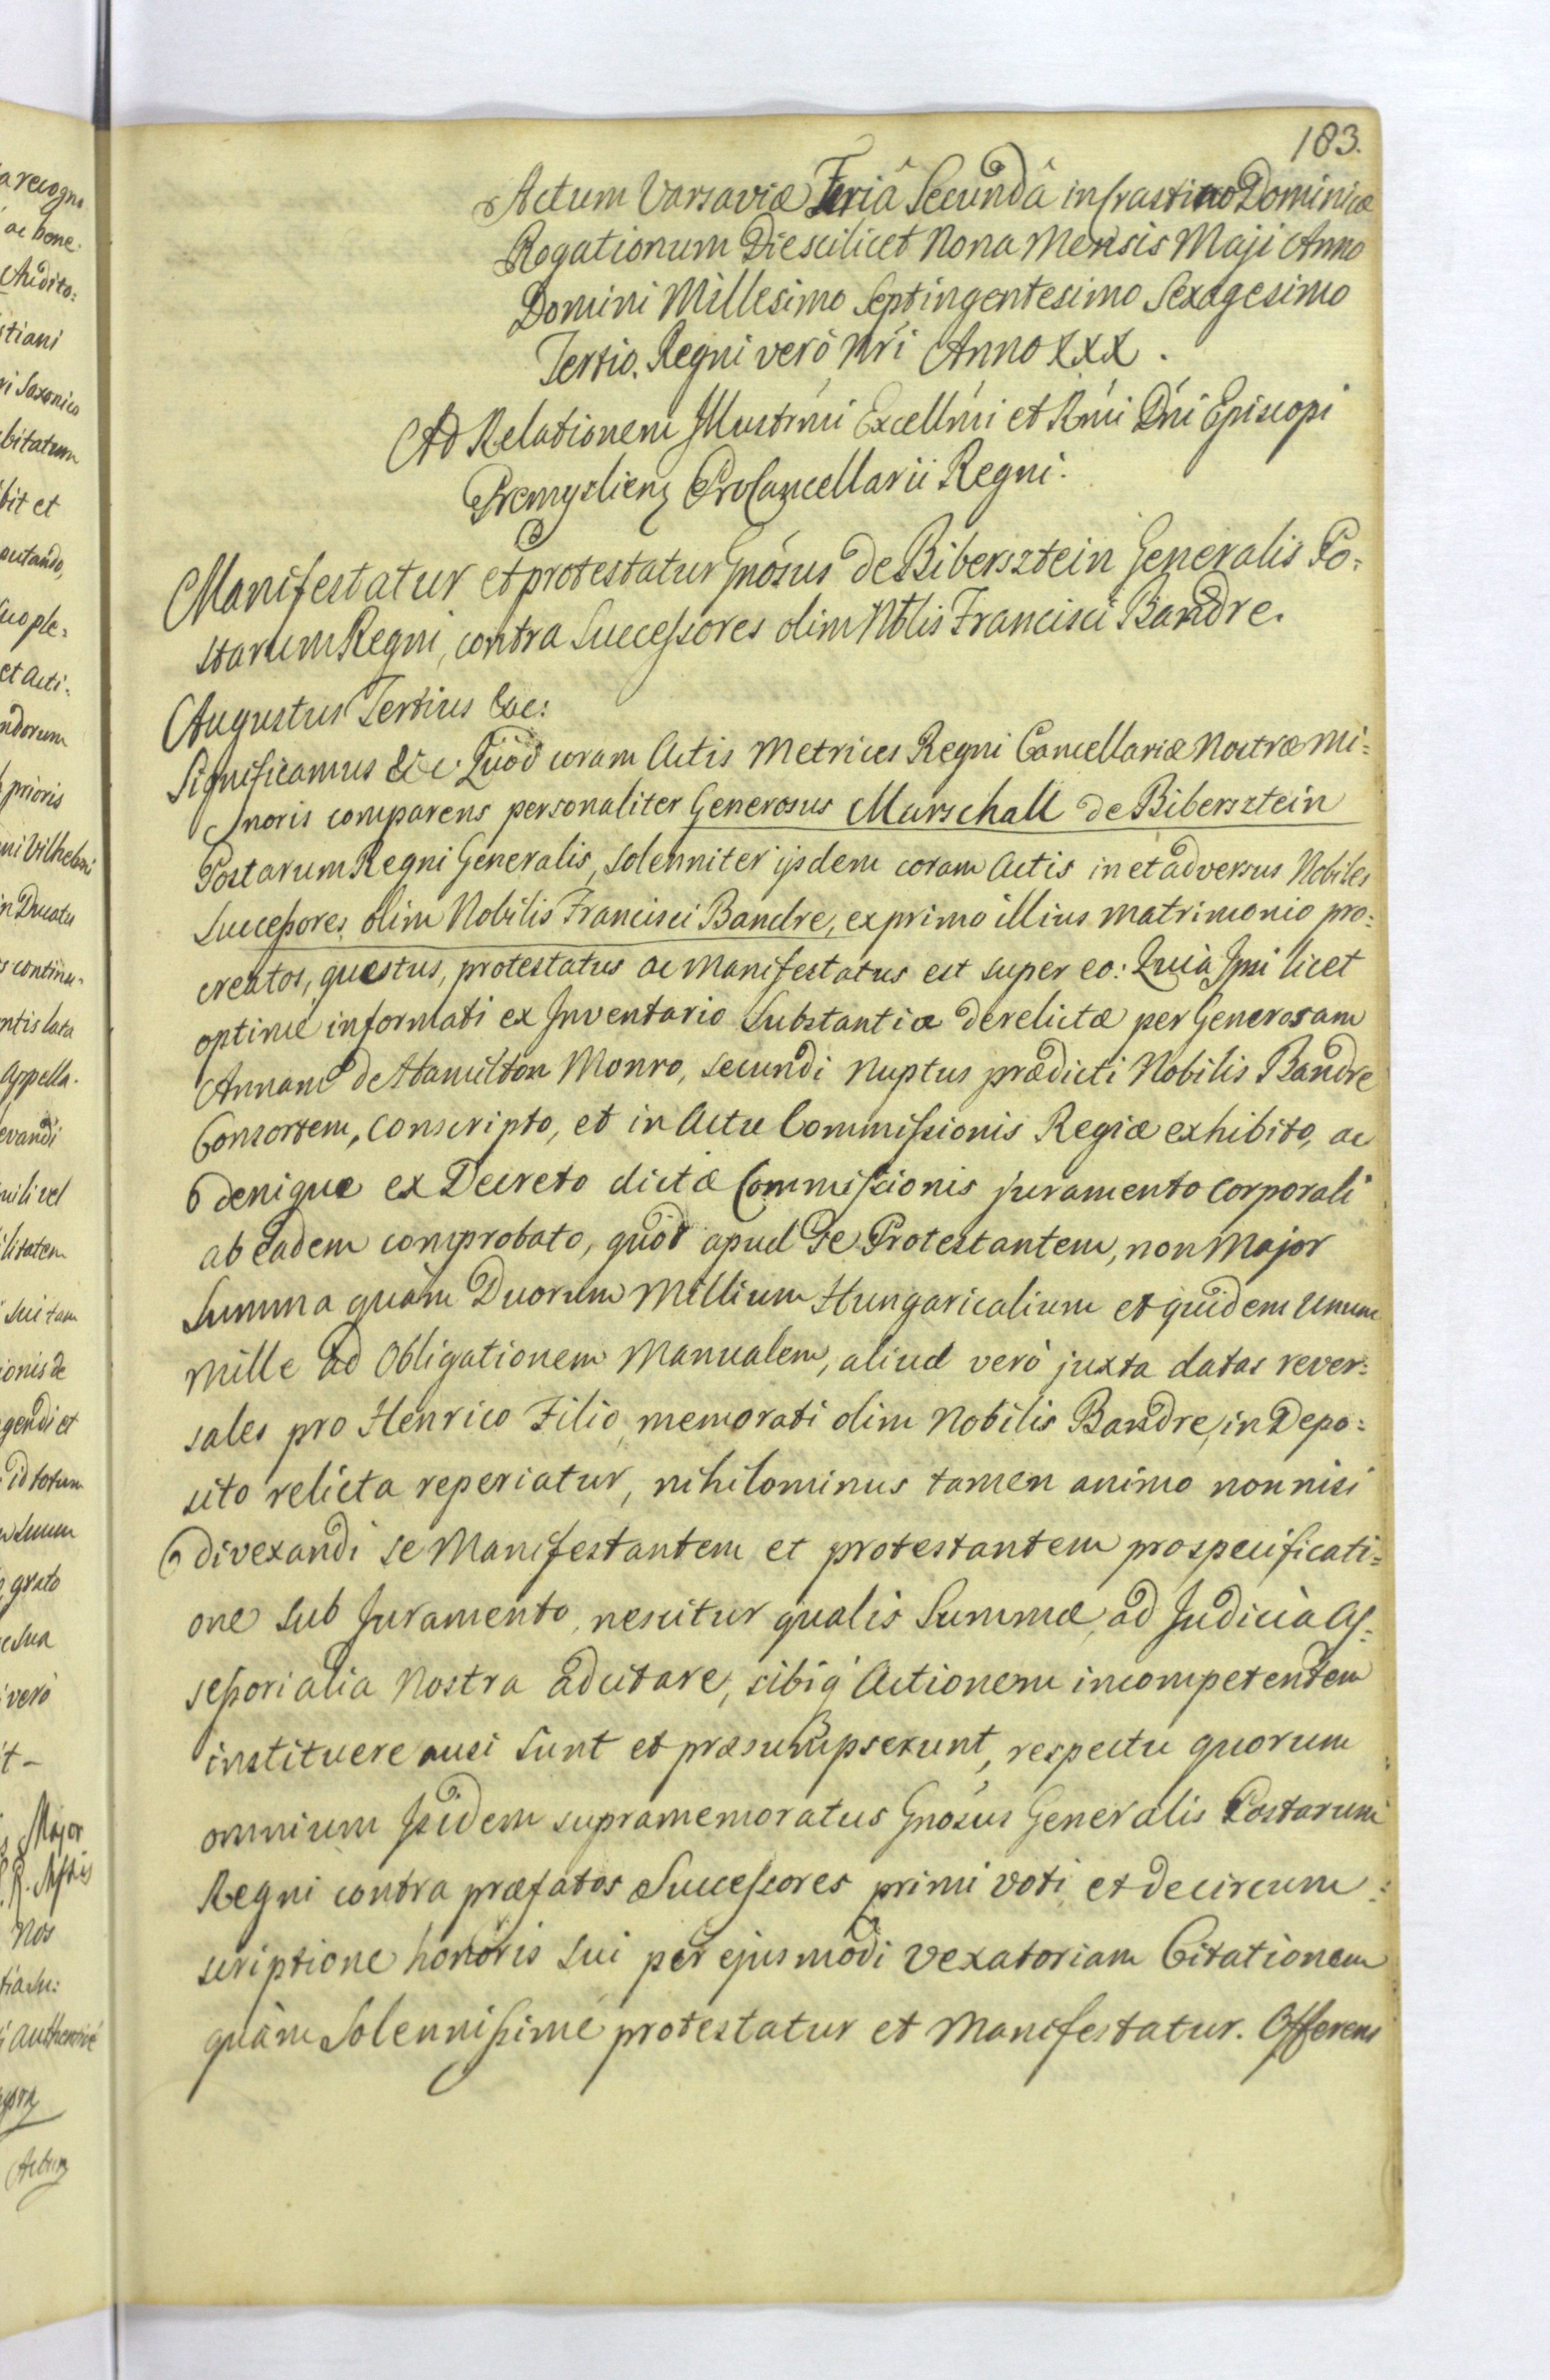 183.
Actum Varsaviæ Feriâ Secundâ in Crastino Dominicæ
Rogationum Die scilicet Nona Mensis Maji Anno
Domini Millesimo Septingentesimo Sexagesimo
Tertio. Regni verò Nri Anno XXX.
Ad Relationem Illustrmi Excellmi et Rmi Dni Episcopi
Premyslien ProCancellarii Regni.
Manifestatur et protestatur Gnosus de Bibersztein Generalis Po:
starum Regni, contra Successores olim Nblis Francisci Bandre.
Augustus Tertius &c:
Significamus &c. Quòd coram Actis Metrices Regni Cancellariæ Nostræ Mi:
noris comparens personaliter Generosus Marschall de Bibersztein
Postarum Regni Generalis, solenniter ijsdem coram Actis in et adversus Nobiles
Successores olim Nobilis Francisci Bandre, ex primo illius matrimonio pro:
creatos, questus, protestatus ac manifestatus est super eo: Quià Ipsi licet
optime informati ex Inventario Substantiæ derelictæ per Generosam
Annam de Hamilton Monro, secundi Nuptus prædicti Nobilis Bandre
Consortem, conscripto, et in Actu Commissionis Regiæ exhibito, ac
denique ex Decreto dictæ Commissionis juramento corporali
ab eadem comprobato, quòd apud se Protestantem, non Major
Summa quàm Duorum Millium Hungaricalium et quidem unum
Mille ad Obligationem Manualem, aliud verò juxta datas rever:
sales pro Henrico Filio memorati olim Nobilis Bandre, in Depo:
sito relicta reperiatur, nihilominus tamen animo nonnisi
divexandi se Manifestantem et protestantem pro specificati:
one sub Juramento, nescitur qualis Summæ, ad Judicia As:
sessorialia Nostra adcitare, sibiq Actionem incompetentem
instituere ausi sunt et præsumpserunt, respectu quorum
omnium Ipsidem supramemoratus Gnosus Generalis Postarum
Regni contra præfatos Successores primi voti et de circum:
scriptione honoris sui per ejusmodi vexatoriam Citationem
quàm Solennissimè protestatur et Manifestatur. Offerens